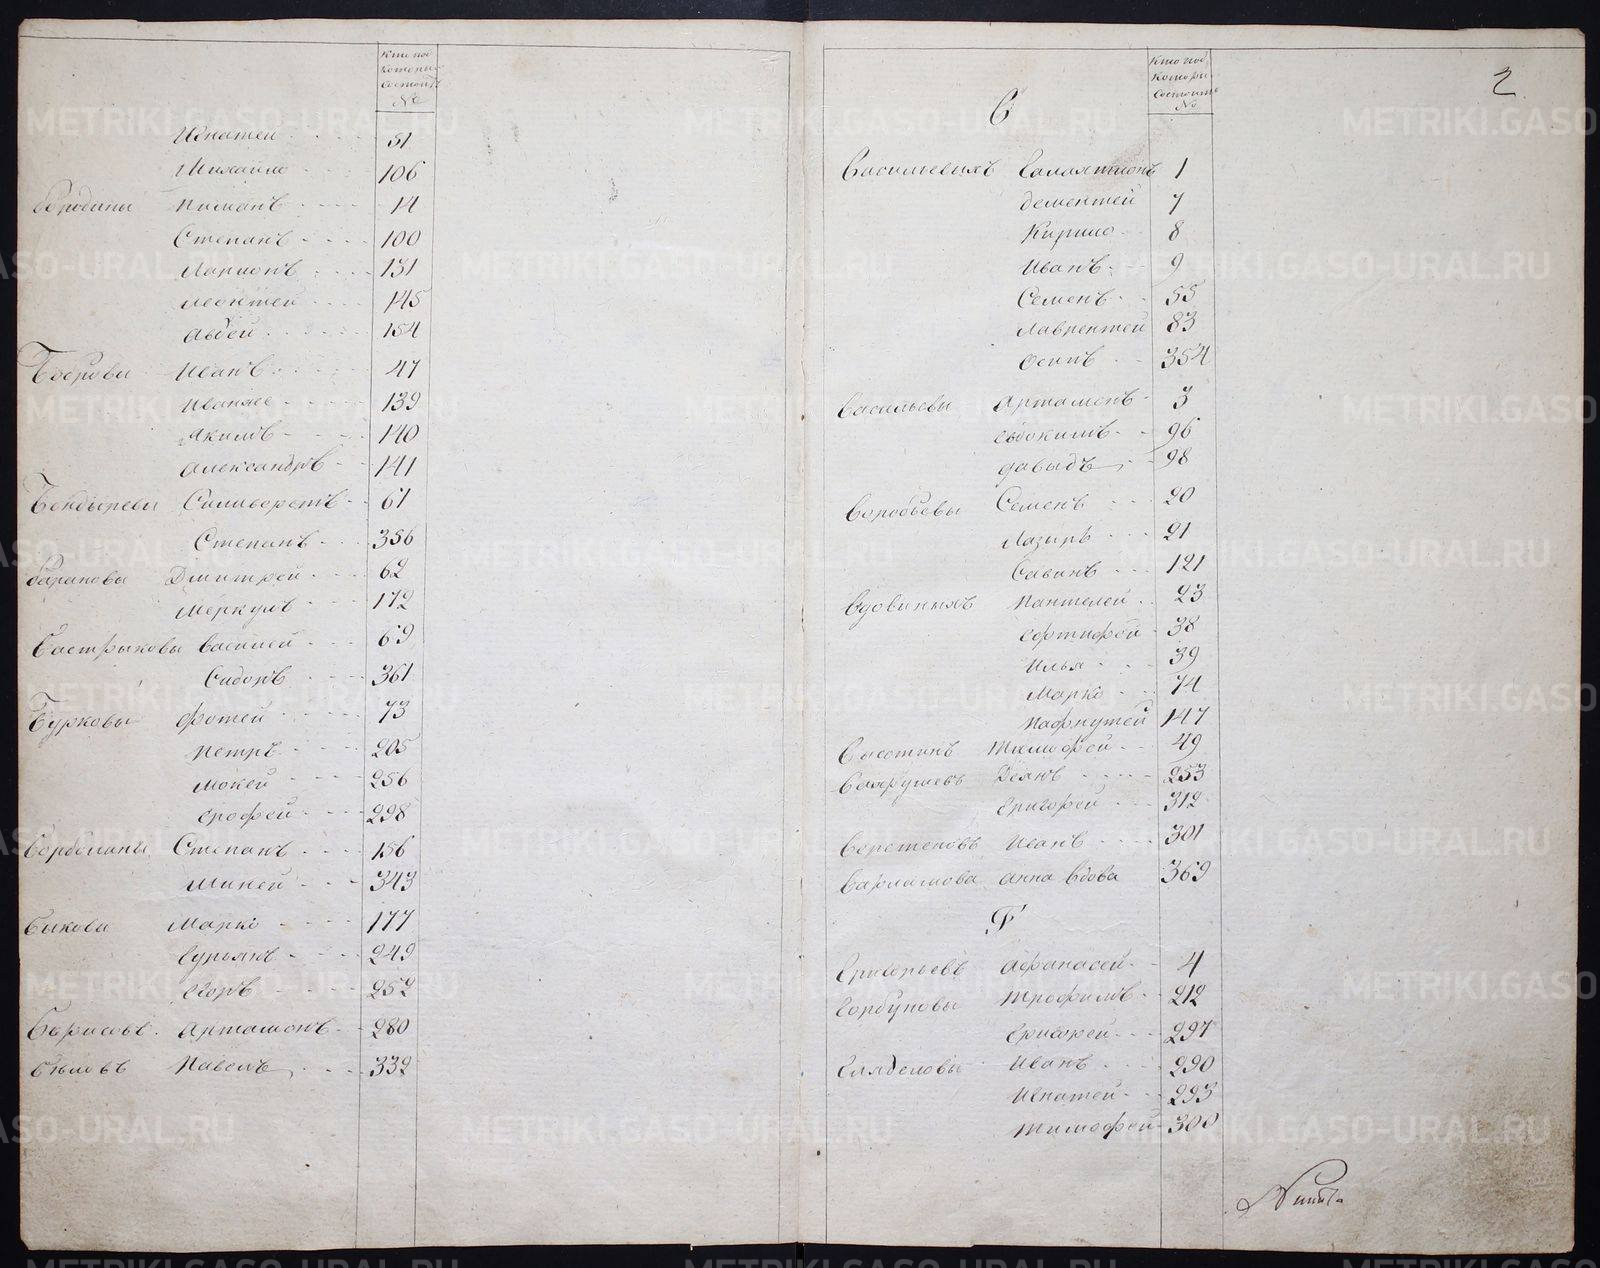 Кто под
которы
состоитъ
№
Игнатей 51
Михайло 106
Бродины Пиманъ 14
Степанъ 100
Ларионъ 131
Леонтей 145
Авдей 154
Бобровы Иванъ 47
139
Акимъ 140
Александръ 141
Бондыревы Силиверстъ 61
Степанъ 356
Барановы Дмитрей 62
Меркулъ 172
Бастрыковы Василей 69
Сидоръ 361
Бурковы Фотей 73
Петръ 205
Мокей 256
Ерофей 298
Степанъ 156
Миней 343
Быковы Марко 177
Гурьянъ 249
Егоръ 252
Борисовъ Артамонъ 280
Бѣловъ Павелъ 332
2
Кто под
которы
состоитъ
№
В
Васильевыхъ Галактионъ 1
Дементей 7
Кирило 8
Иванъ 9
Семенъ 55
Лаврентей 83
Осипъ 354
Васильевы Артамонъ 3
Евдокимъ 96
Давыдъ 98
Воробьевы Семенъ 20
Лазарь 21
Савинъ 121
Вдовиныхъ Пантелей 23
38
Илья 39
Марко 74
Пафнутей 147
Тимофей 49
253
Григорей 312
Веретеновъ Иванъ 301
Варламова Анна вдова 369
Г
Григорьевъ Афанасей 4
Горбуновы Трофимъ 212
Григорей 297
Гляделовы Иванъ 290
Игнатей 293
Тимофей 300
METRIKI.GASO-URAL.RU